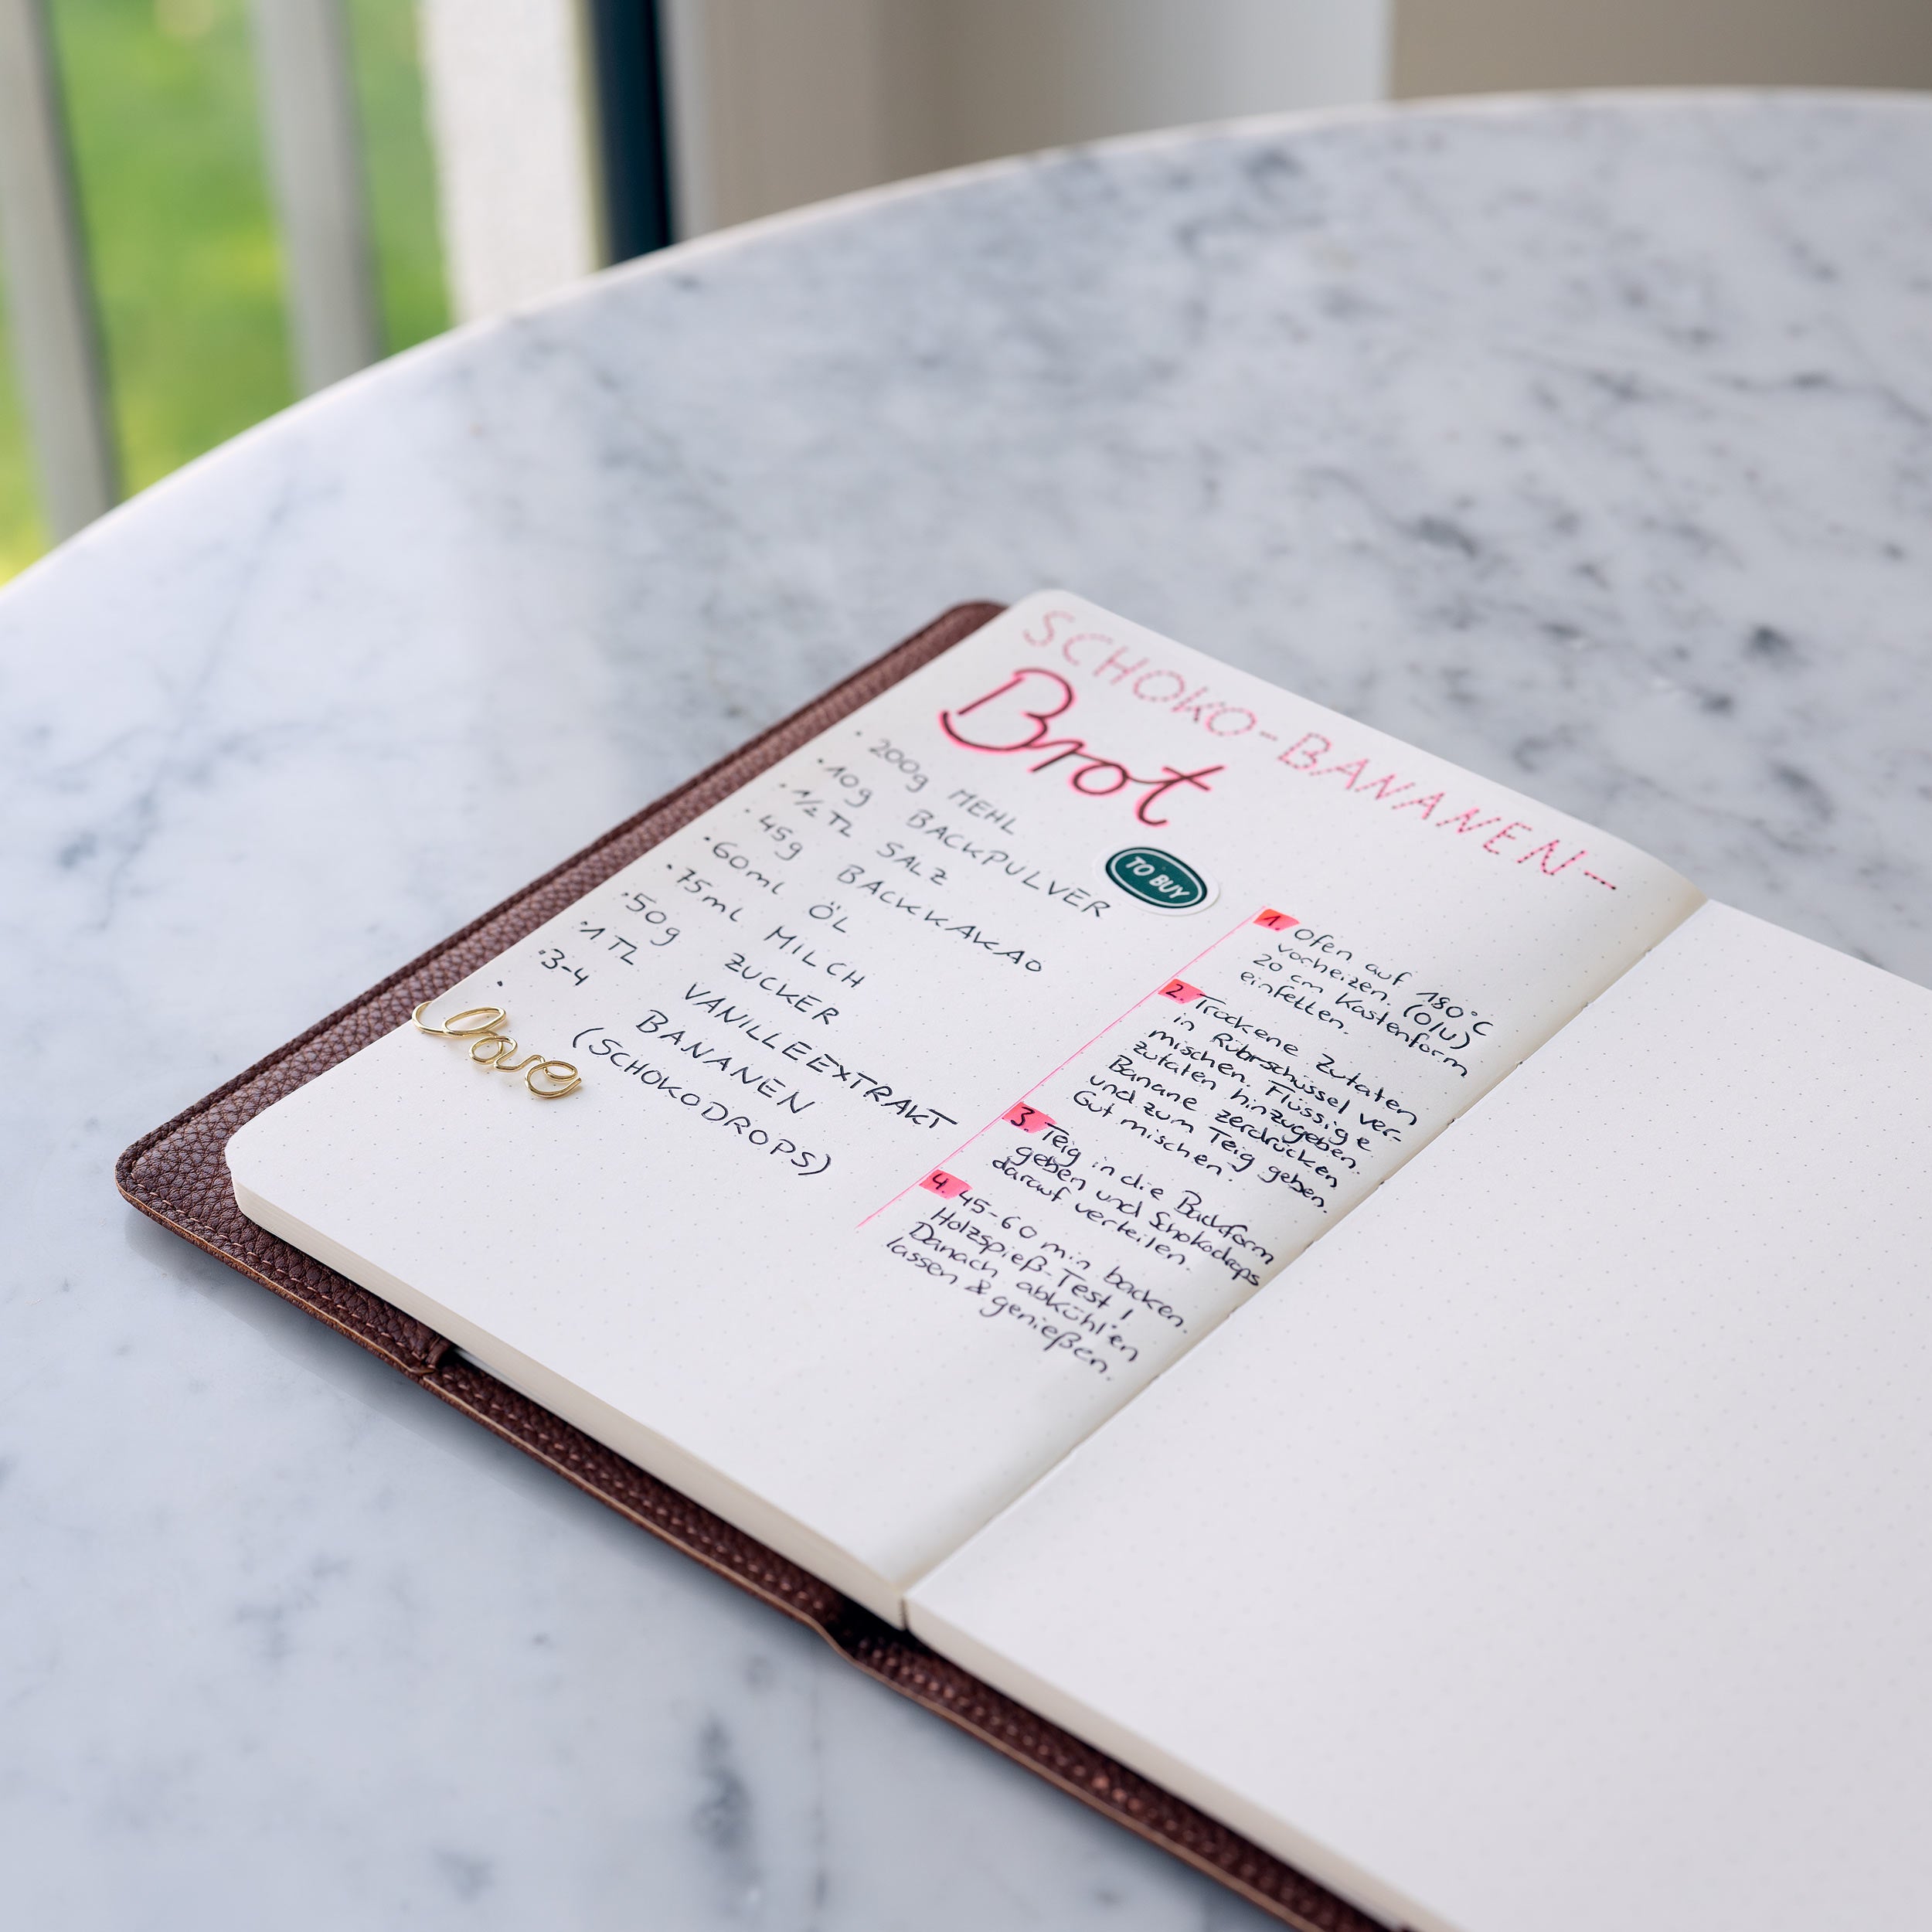 SCHOKO-BANANEN-
Brot
· 200g MEHL
· 10g BACKPULVER
· 1/2 TL SALZ
· 45g BACKKAKAO
· 60ml ÖL
· 75ml MILCH
· 50g ZUCKER
· 1 TL VANILLEEXTRAKT
· 3-4 BANANEN
· (SCHOKODROPS)
love
TO BUY
1. Ofen auf 180°C
vorheizen. (O/U)
20 cm Kastenform
einfetten.
2. Trockene Zutaten
in Rührschüssel ver-
mischen. Flüssige
Zutaten hinzugeben.
Banane zerdrücken
und zum Teig geben.
Gut mischen.
3. Teig in die Backform
geben und Schokodrops
darauf verteilen.
4. 45-60 min backen.
Holzspieß-Test!
Danach abkühlen
lassen & genießen.